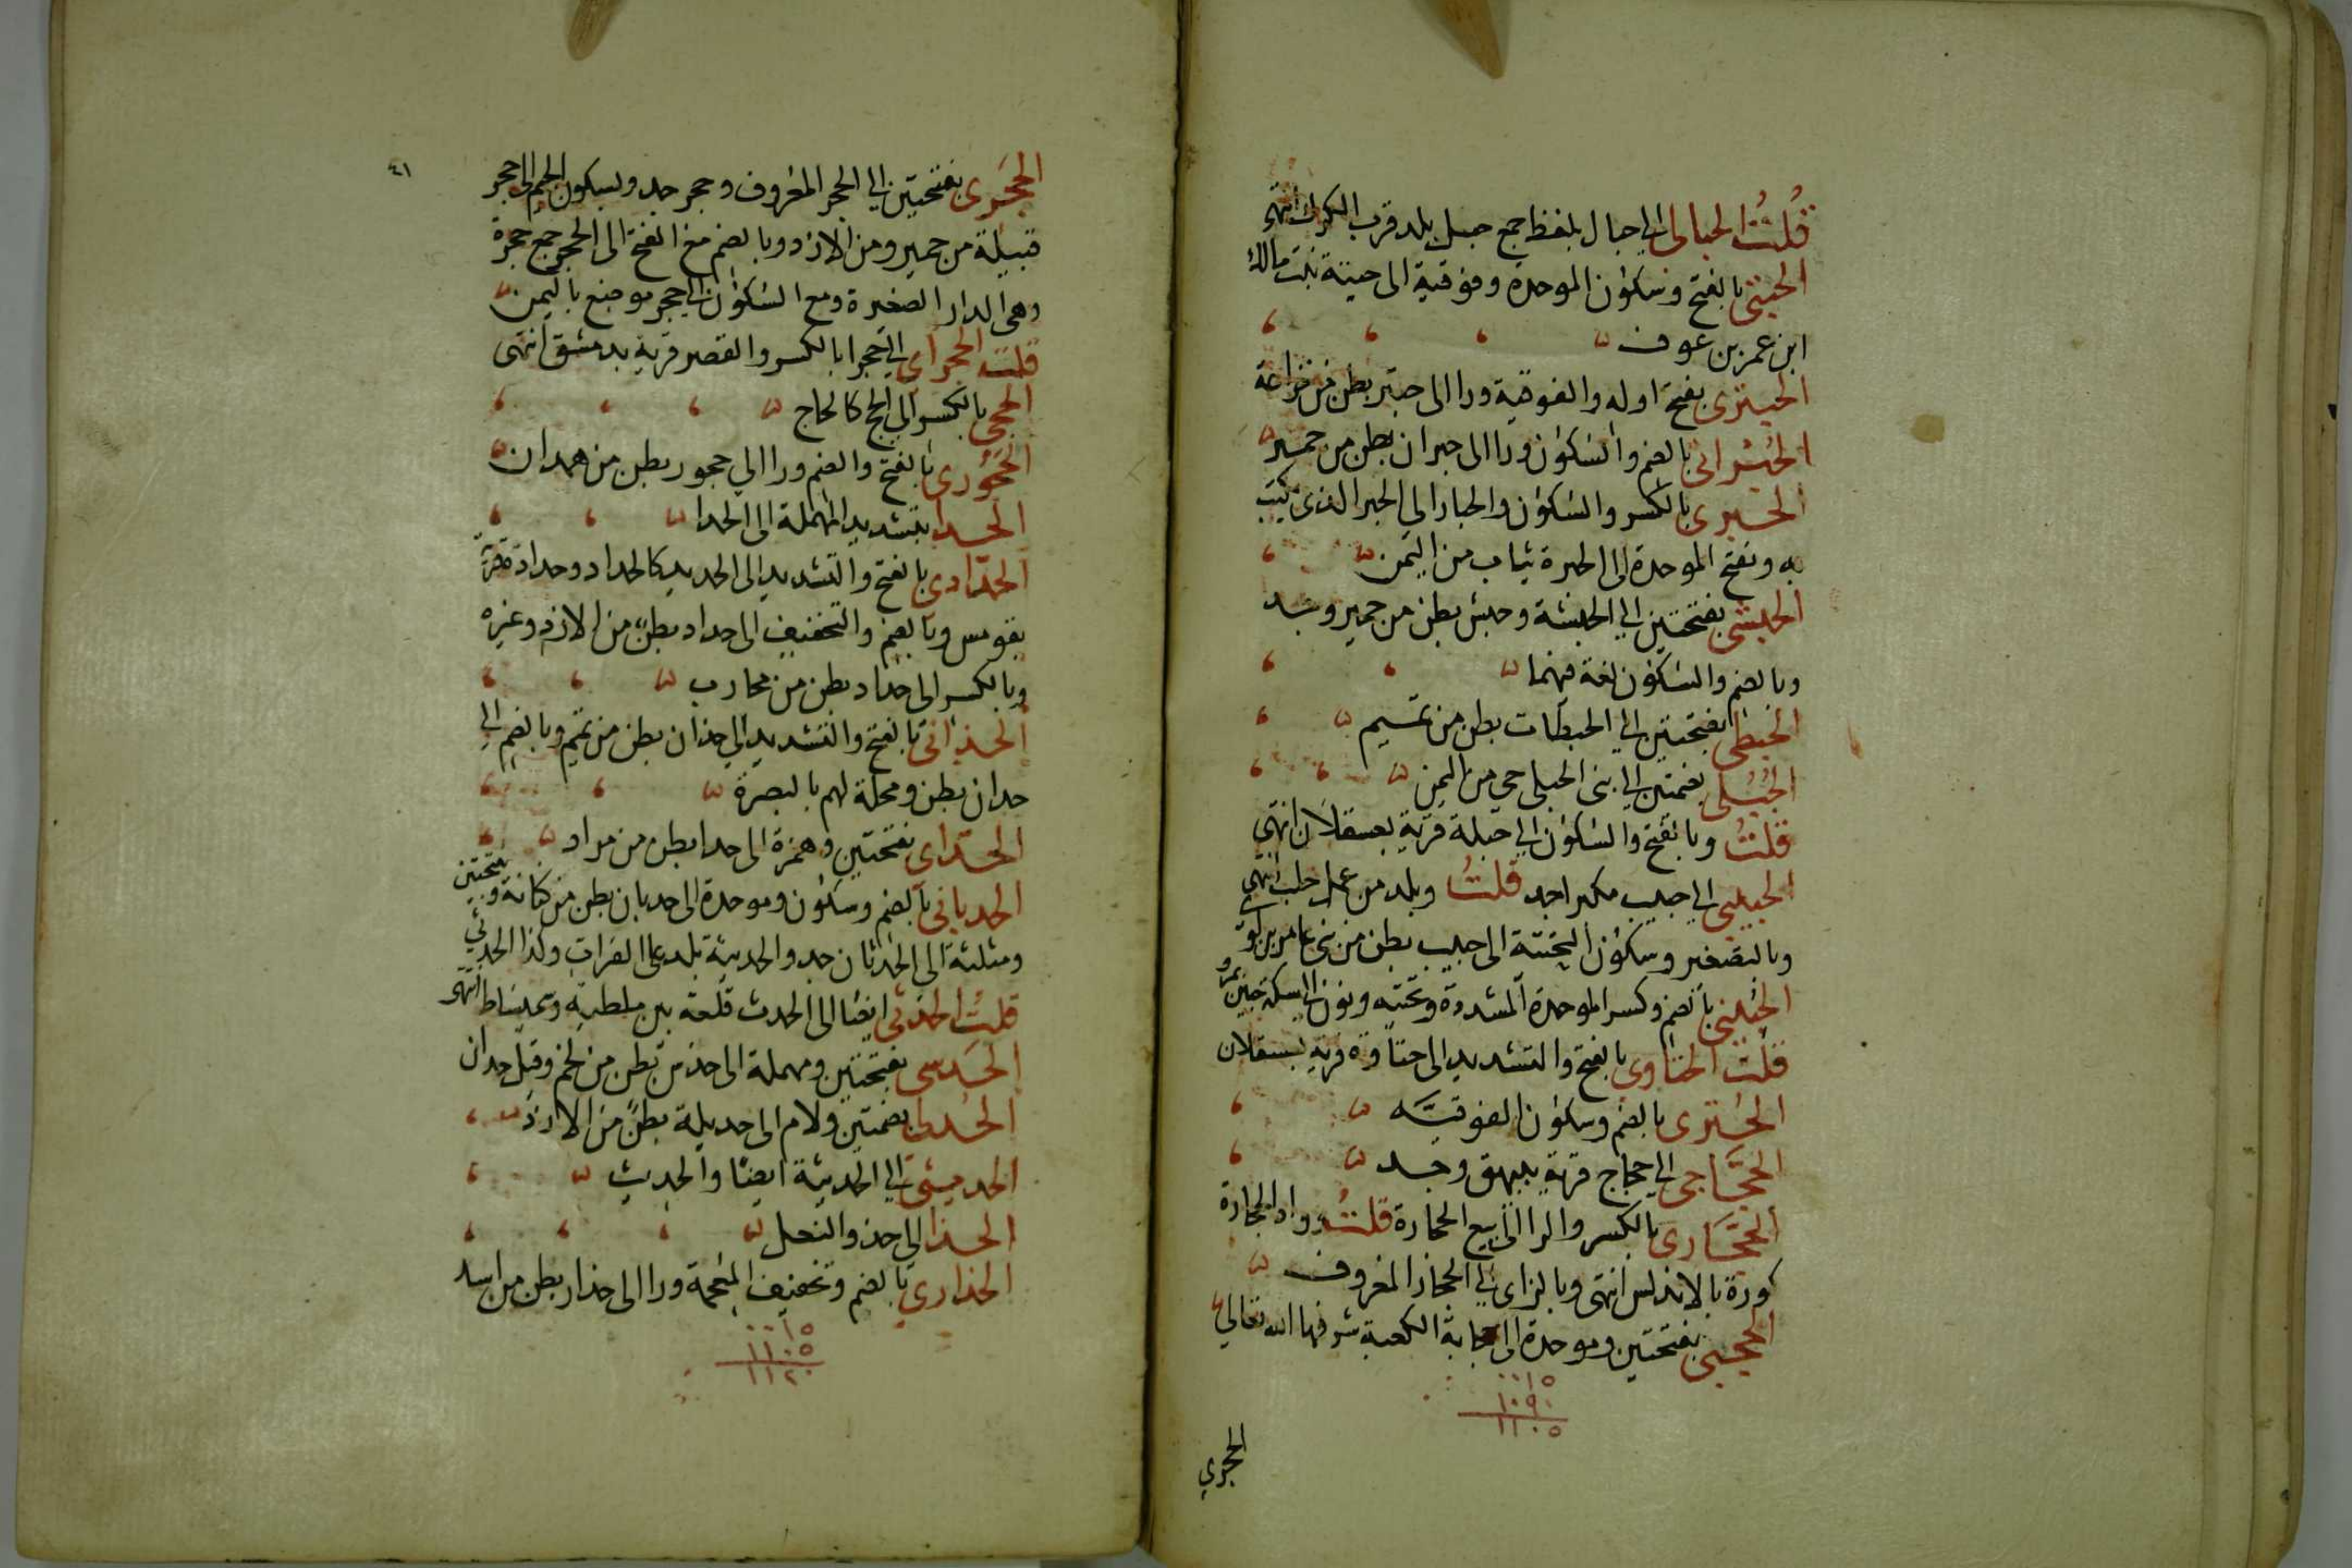 قُلتُ الحبالى الى حبال بلفظ جمع جبل بلد قرب الكرك انتهى
الحبتى بالفتح وسكون الموحدة وفوقية الى حبتة بنت مالك
ابن عمر بن عوف
الحبترى بفتح اوله والفوقية ورا الى حبتر بطن من خزاعة
الحُبْرانى بالضم والسكون ورا الى حبران بطن من حمير
الحبرى بالكسر والسكون والحبار الى الحبر الذى يكتب
به وبفتح الموحدة الى الحبرة ثياب من اليمن
الحبشى بفتحتين الى الحبشة وحبش بطن من حمير وجد
وبالضم والسكون لغة فيهما
الحبطى بفتحتين الى الحبطات بطن من تميم
الحُبُلى بضمتين الى بنى الحبلى حى من اليمن
قلتُ وبالفتح والسكون الى حبلة قرية بعسقلان انتهى
الحبيبى الى حبيب مكبرا جد قلتُ وبلد من عمل حلب انتهى
وبالتصغير وسكون التحتية الى حبيب بطن من بنى عامر بن لوى
الحُبينى بالضم وكسر الموحدة المشددة وتحتيه ونون الى سكة حبين بمرو
قلتُ الحتاوى بالفتح والتشديد الى حتاوة قرية بعسقلان
الحُترى بالضم وسكون الفوقيه
الحجَّاجى الى حجاج قرية ببيهق وجد
الحجَّارى بالكسر والرا الى بيع الحجارة قلتُ ووادى الحجارة
كورة بالاندلس انتهى وبالزاى الى الحجاز المعروف
الحجبى بفتحتين وموحدة الى حجابة الكعبة شرفها الله تعالى
٠٠١٥
١٠٩٠
١١٠٥
الحجرى
٤١
الحجَرى بفتحتين الى الحجر المعروف وحجر جد وبسكون الجيم الى حجر
قبيلة من حمير ومن الازد وبالضم مع الفتح الى الحجر جمع حجرة
وهى الدار الصغيرة ومع السكون الى حجر موضع باليمن
قلت الحجرآى الى حجرا بالكسر والقصر قرية بدمشق انتهى
الحجى بالكسر الى الحج كالحاج
الحجُورى بالفتح والضم ورا الى حجور بطن من همدان
الحدا بتشديد المهملة الى الحدا
الحدّادى بالفتح والتشديد الى الحديد كالحداد وحدادة قرية
بقومس وبالضم والتخفيف الى حداد بطن من الازد وغيره
وبالكسر الى حداد بطن من محارب
الحدانى بالفتح والتشديد الى حدان بطن من تميم وبالضم الى
حدان بطن ومحلة لهم بالبصرة
الحداى بفتحتين وهمزة الى حدا بطن من مراد
الحدبانى بالضم وسكون وموحدة الى حدبان بطن من كنانة وبفتحتين
ومثلثة الى الحدثان جد والحديثة بلد على الفرات وكذا الحدثى
قلتُ الحدثى ايضا الى الحدث قلعة بين ملطيه وسميساط انتهى
الحَدَسى بفتحتين ومهملة الى حدس بطن من لخم وقيل حدان
الحُدلى بضمتين ولام الى حديلة بطن من الازد
الحديثى الى الحديثة ايضا والحديث
الحذا الى حذو النعل
الحذارى بالضم وتخفيف المعجمة ورا الى حذار بطن من اسد
٠٠١٥
١١٠٥
١١٢٠